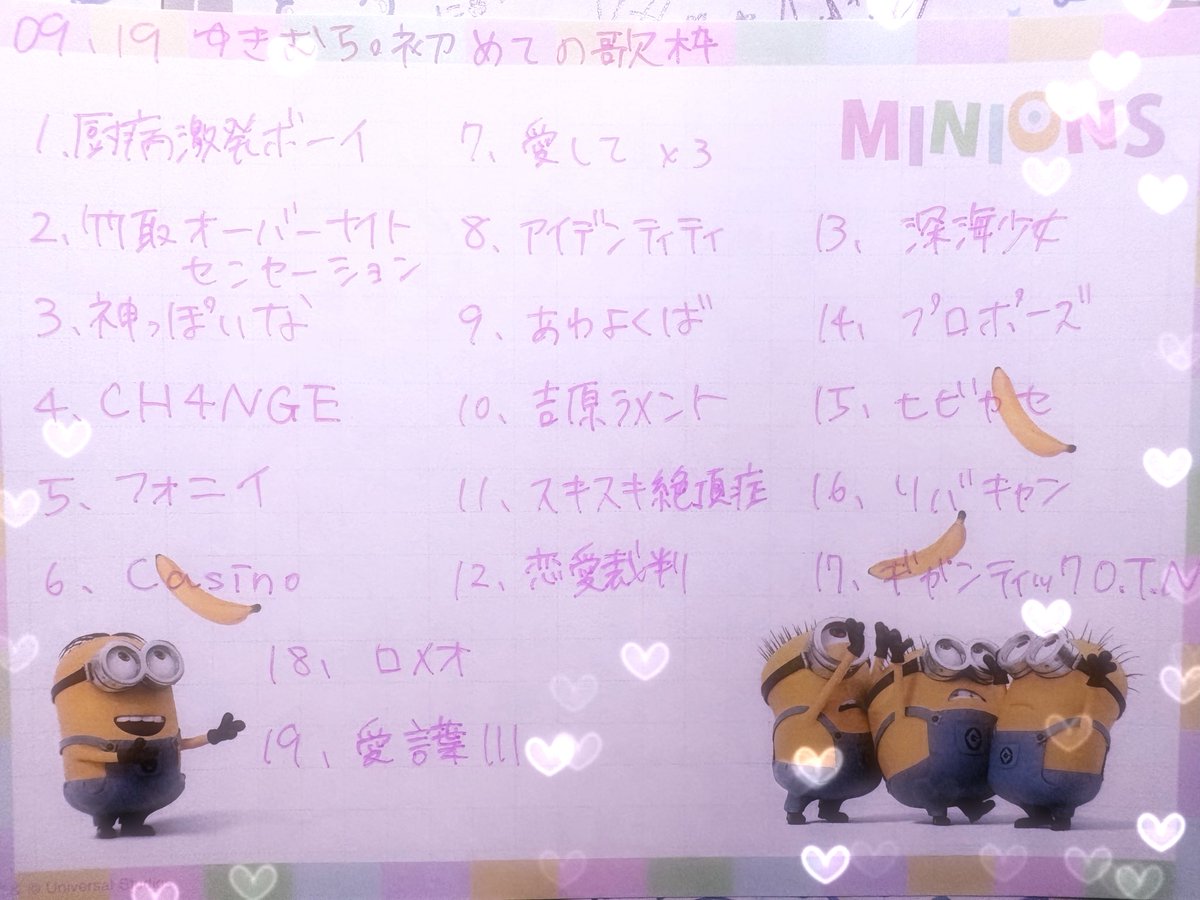 09.19 ゆきむら。初めての歌枠
MINIONS
1、厨病激発ボーイ
2、竹取オーバーナイト
センセーション
3、神っぽいな
4、CH4NGE
5、フォニイ
6、Casino
7、愛して×3
8、アイデンティティ
9、あわよくば
10、吉原ラメント
11、スキスキ絶頂症
12、恋愛裁判
13、深海少女
14、プロポーズ
15、ヒビカセ
16、リバキャン
17、ギガンティックO.T.N
18、ロメオ
19、愛言葉III
© Universal Studios